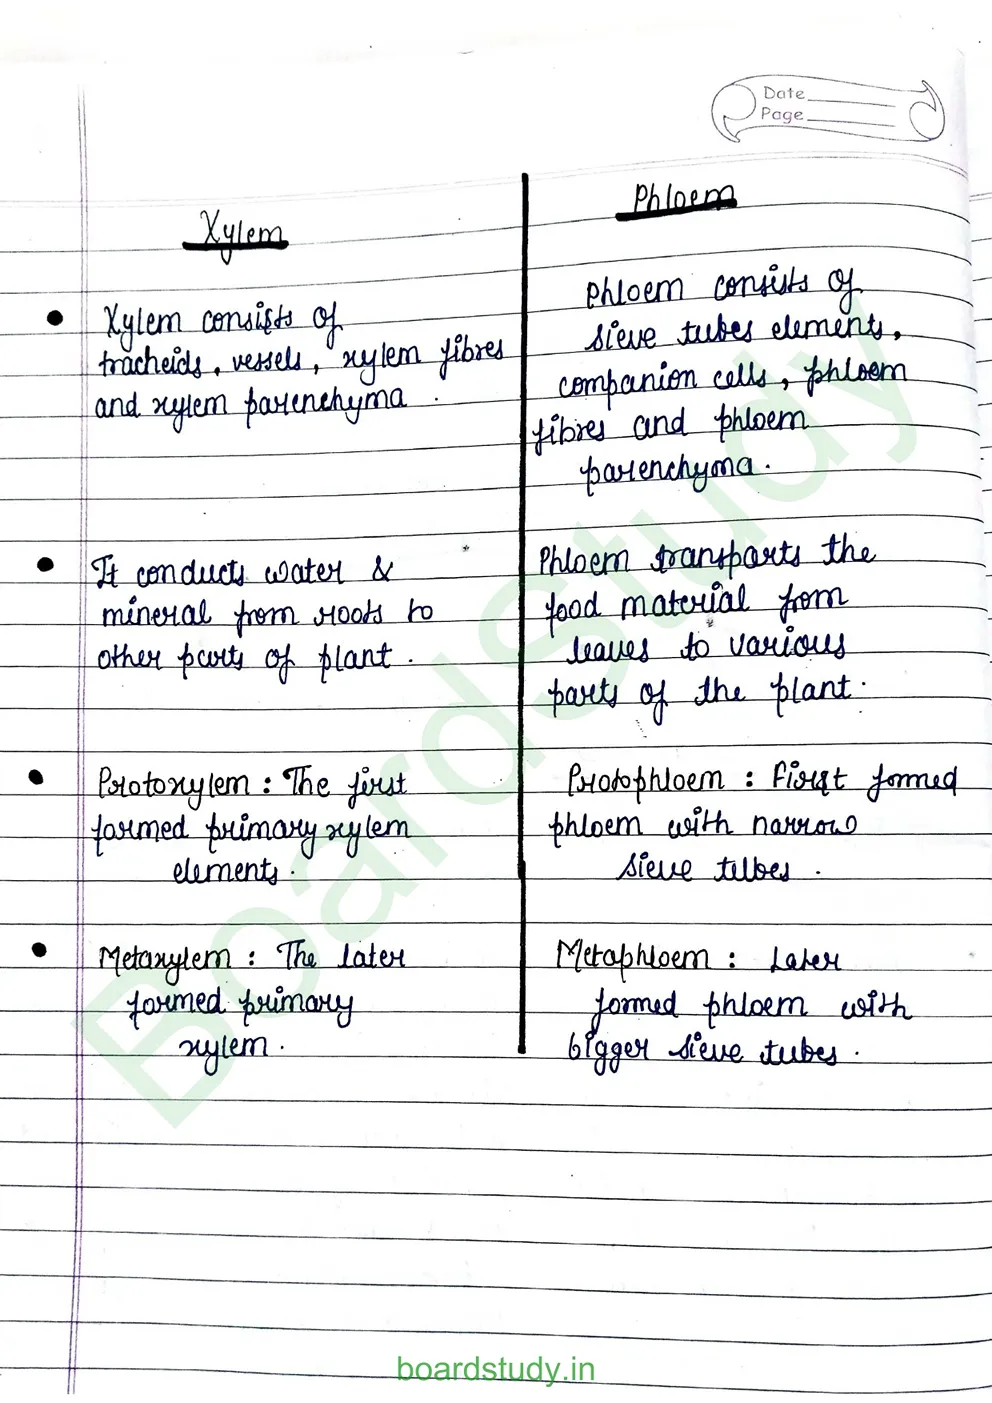 Date
Page
Xylem
• Xylem consists of
tracheids, vessels, xylem fibres
and xylem parenchyma.
• It conducts water &
mineral from roots to
other parts of plant.
• Protoxylem : The first
formed primary xylem
elements.
• Metaxylem : The later
formed primary
xylem.
Phloem
Phloem consists of
sieve tubes elements,
companion cells, phloem
fibres and phloem
parenchyma.
Phloem transparts the
food material from
leaves to various
parts of the plant.
Protophloem : First formed
phloem with narrow
sieve tubes.
Metaphloem : Later
formed phloem with
bigger sieve tubes.
BoardStudy
boardstudy.in